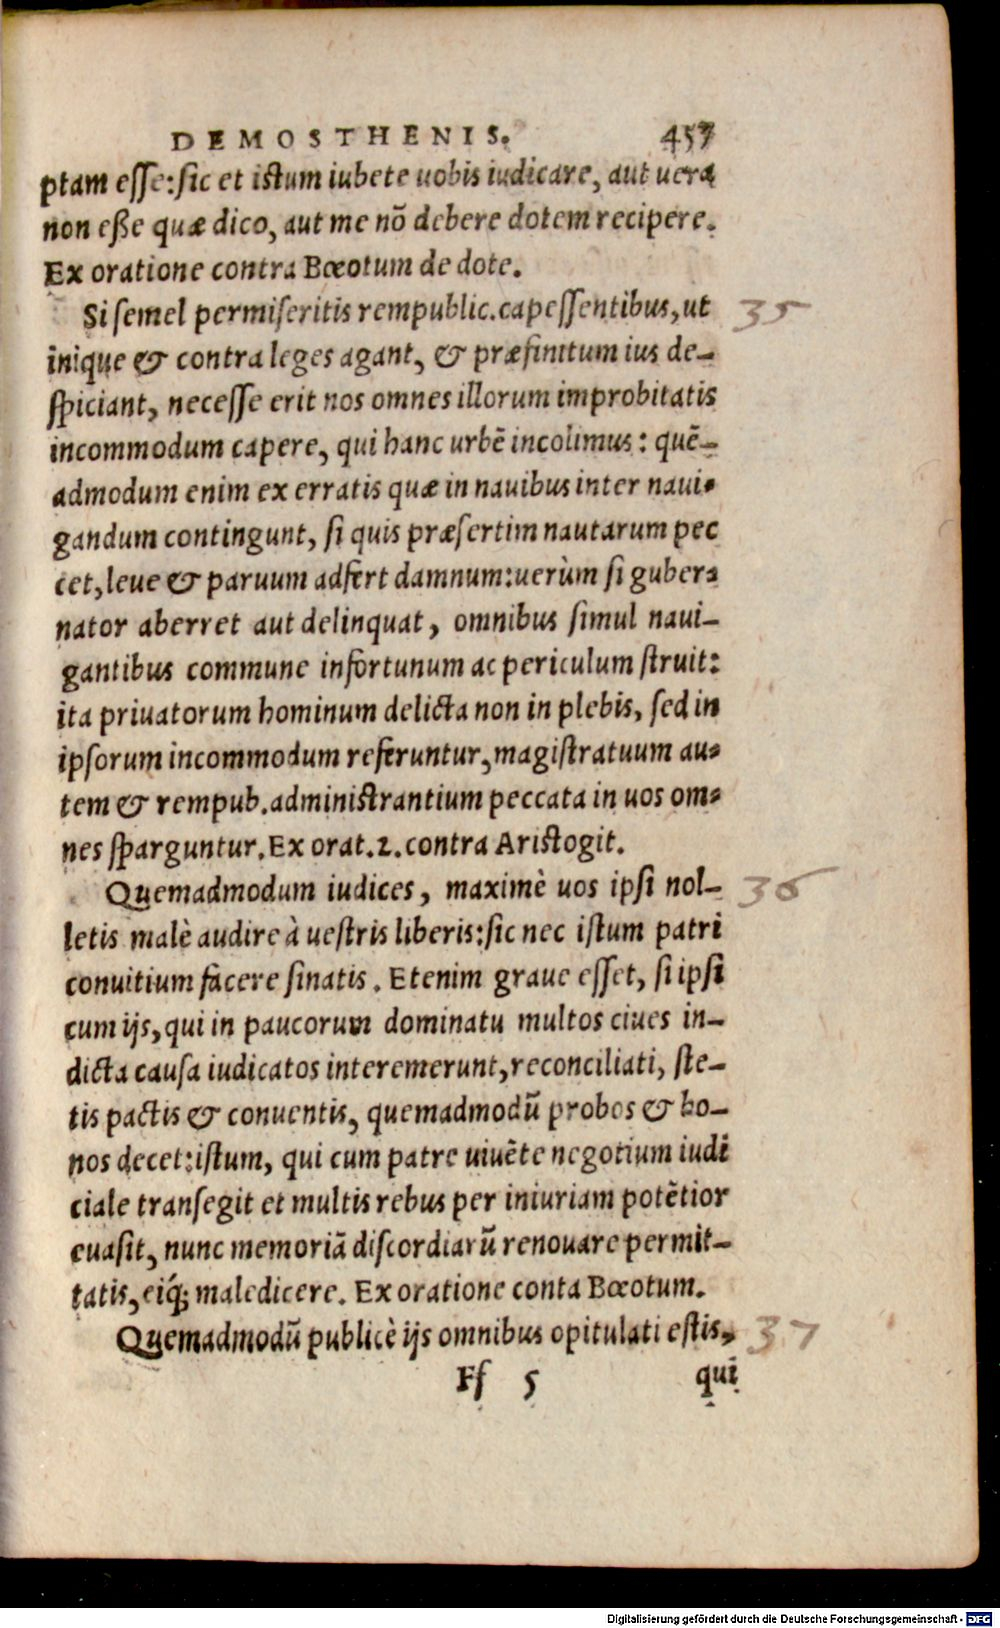 DEMOSTHENIS. 457
ptam esse: sic et istum iubete uobis iudicare, aut uera
non eße quæ dico, aut me nō debere dotem recipere.
Ex oratione contra Bœotum de dote.
Si semel permiseritis rempublic. capessentibus, ut 35
inique & contra leges agant, & præfinitum ius de-
spiciant, necesse erit nos omnes illorum improbitatis
incommodum capere, qui hanc urbē incolimus: quē-
admodum enim ex erratis quæ in nauibus inter naui-
gandum contingunt, si quis præsertim nautarum pec
cet, leue & paruum adfert damnum: uerùm si guber-
nator aberret aut delinquat, omnibus simul naui-
gantibus commune infortunum ac periculum struit:
ita priuatorum hominum delicta non in plebis, sed in
ipsorum incommodum referuntur, magistratuum au-
tem & rempub. administrantium peccata in uos om-
nes sparguntur. Ex orat. 2. contra Aristogit.
Quemadmodum iudices, maximè uos ipsi nol- 36
letis malè audire à uestris liberis: sic nec istum patri
conuitium facere sinatis. Etenim graue esset, si ipsi
cum ijs, qui in paucorum dominatu multos ciues in-
dicta causa iudicatos interemerunt, reconciliati, ste-
tis pactis & conuentis, quemadmodū probos & bo-
nos decet: istum, qui cum patre uiuēte negotium iudi
ciale transegit et multis rebus per iniuriam potētior
euasit, nunc memoriā discordiarū renouare permit-
tatis, eiq́; maledicere. Ex oratione conta Bœotum.
Quemadmodū publicè ijs omnibus opitulati estis, 37
Ff 5 qui
Digitalisierung gefördert durch die Deutsche Forschungsgemeinschaft - DFG